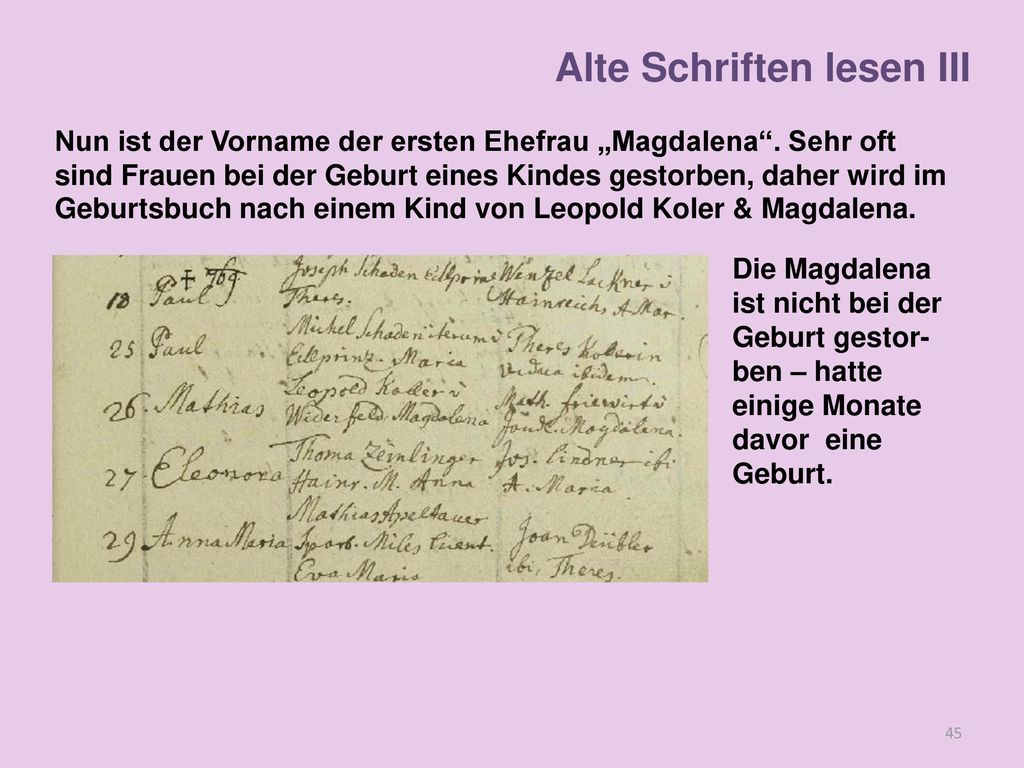 Alte Schriften lesen III
Nun ist der Vorname der ersten Ehefrau „Magdalena“. Sehr oft
sind Frauen bei der Geburt eines Kindes gestorben, daher wird im
Geburtsbuch nach einem Kind von Leopold Koler & Magdalena.
18 Paul
Joseph Schaden
Theres.
Wenzel Lackner
Hainreichs A. Mar.
25 Paul
Michel Schaden iterum
Edlprinz. Maria
Theres Kollerin
vidua ibidem.
26. Mathias
Leopold Koller
Widerfeld Magdalena
Math.
Magdalena.
27 Eleonora
Thoma Zeinlinger
Hainr. M. Anna
Jos. Lindner ibi
A. Maria
29 Anna Maria
Mathias Apeltauer
Miles
Eva Maria
Joan
ibi, Theres.
Die Magdalena
ist nicht bei der
Geburt gestor-
ben – hatte
einige Monate
davor eine
Geburt.
45